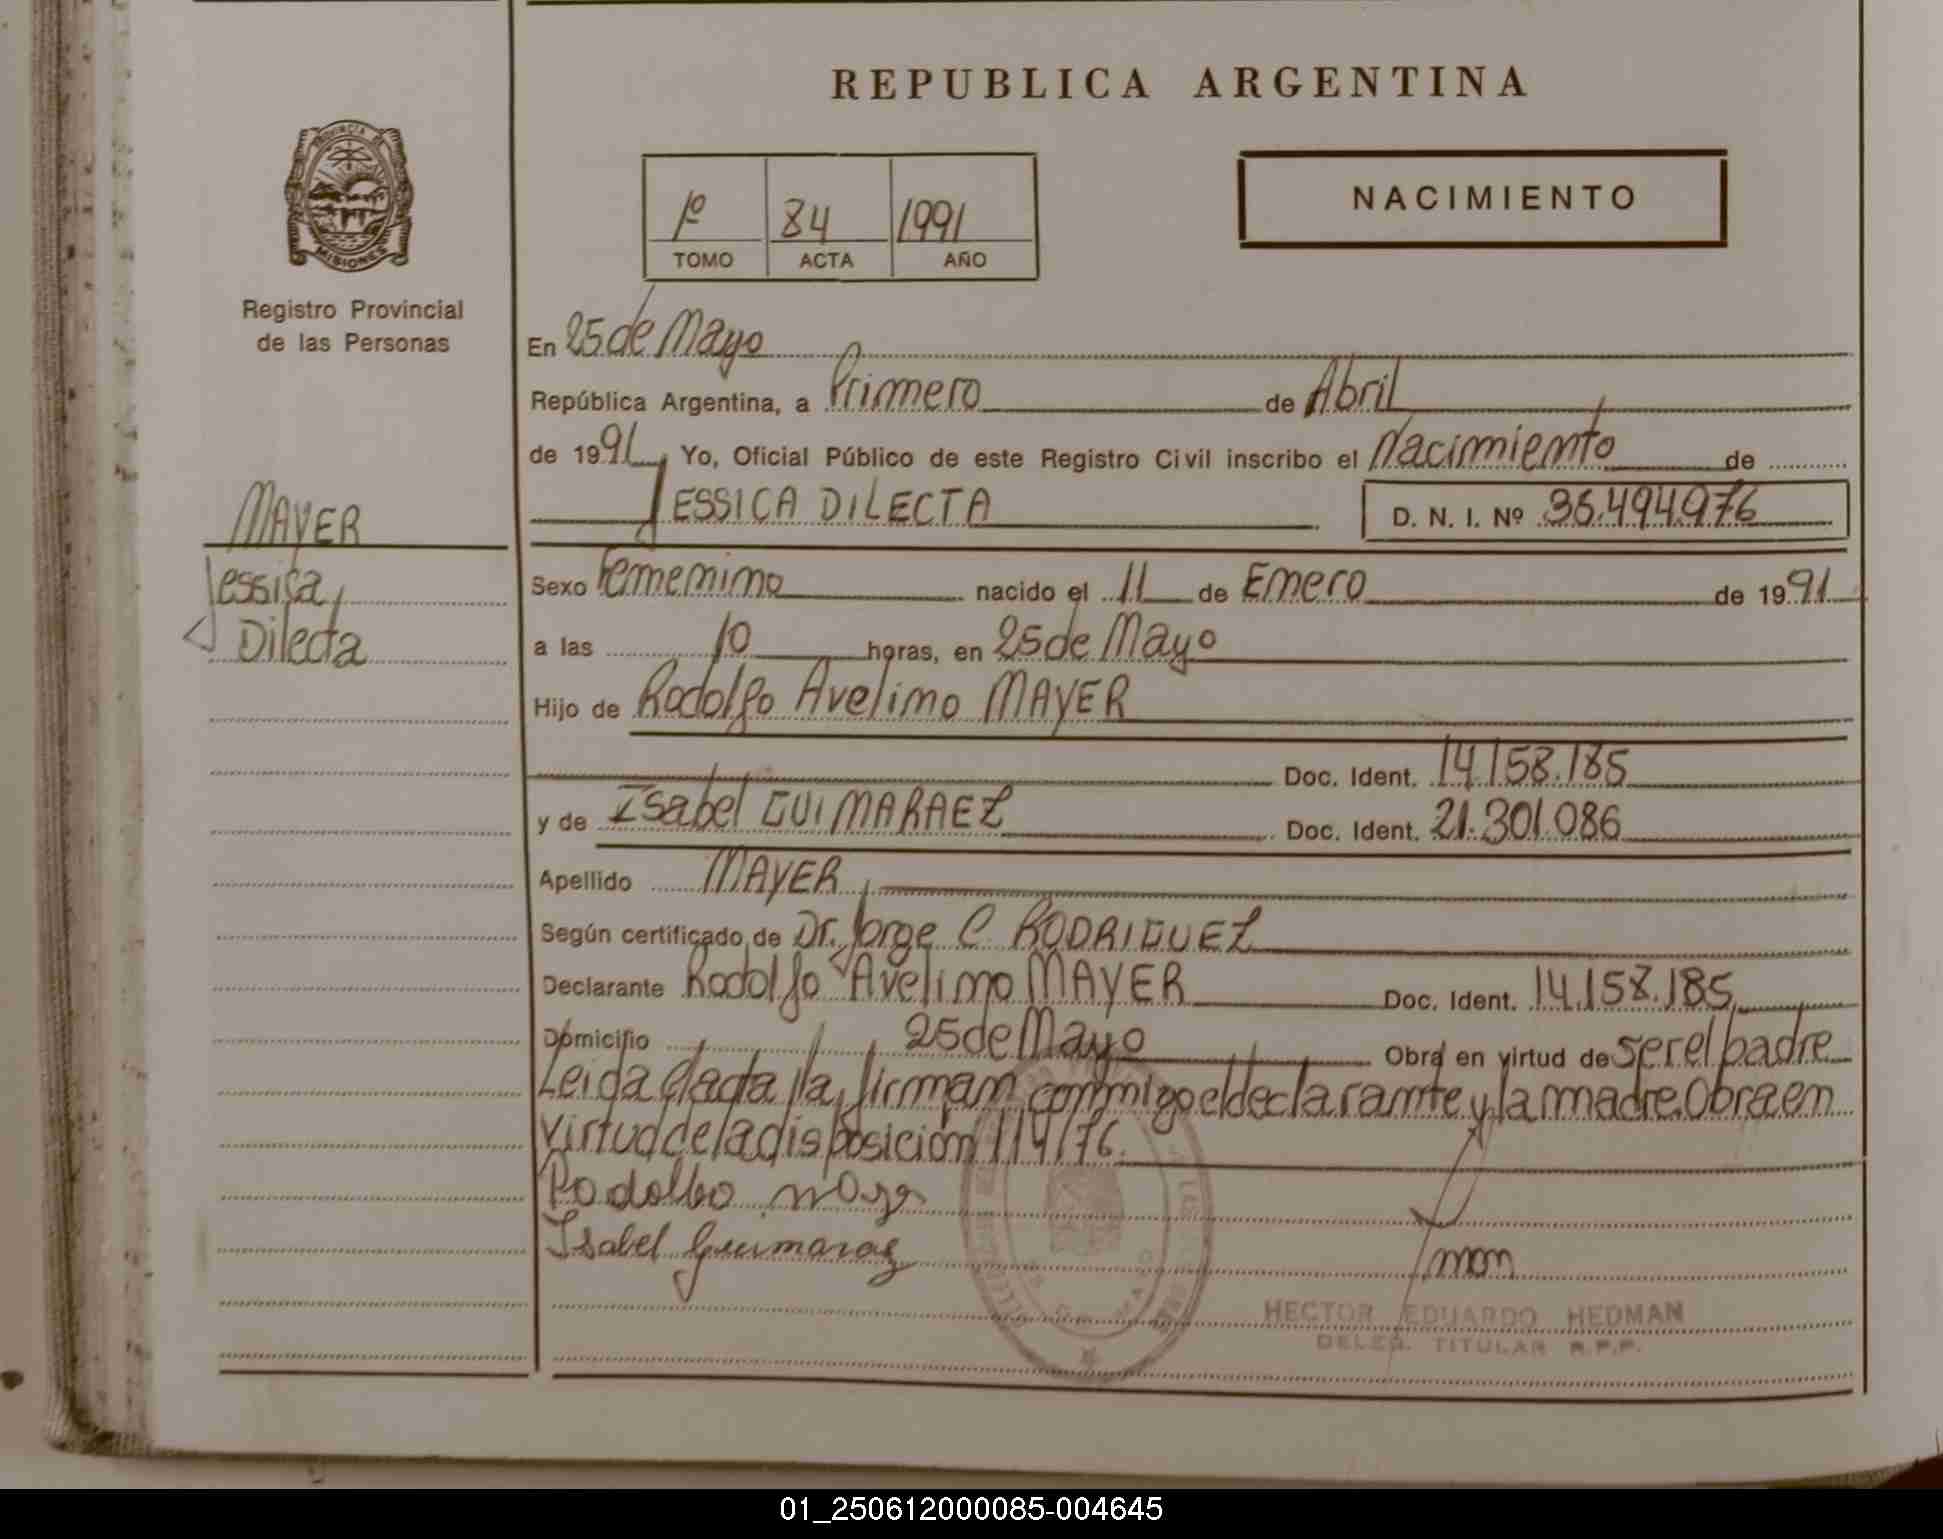 REPUBLICA ARGENTINA
PROVINCIA DE
MISIONES
Registro Provincial
de las Personas
1º 84 1991
TOMO ACTA AÑO
NACIMIENTO
MAYER
Jessica,
Dilecta
En 25 de Mayo
República Argentina, a Primero de Abril
de 1991 Yo, Oficial Público de este Registro Civil inscribo el Nacimiento de
JESSICA DILECTA D. N. I. Nº 36.494.976
Sexo Femenino nacido el 11 de Enero de 1991
a las 10 horas, en 25 de Mayo
Hijo de Rodolfo Avelino MAYER
Doc. Ident. 14.158.185
y de Isabel GUIMARAEZ Doc. Ident. 21.301.086
Apellido MAYER
Según certificado de Dr. Jorge C. RODRIGUEZ
Declarante Rodolfo Avelino MAYER Doc. Ident. 14.158.185
Domicilio 25 de Mayo Obra en virtud de ser el padre
Leida el acta, la firman conmigo el declarante y la madre. Obra en
virtud de la disposición 114/76.
Rodolfo
Isabel
HECTOR EDUARDO HEDMAN
DELEG. TITULAR R.P.P.
01_250612000085-004645